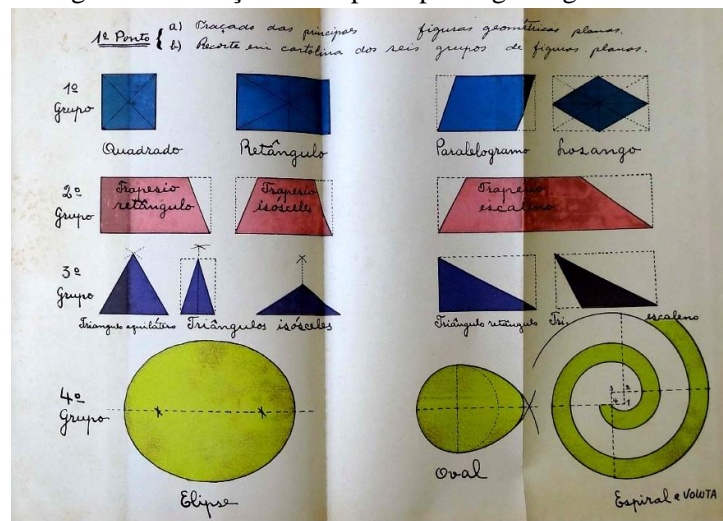 1º Ponto { a) Traçado das principaes figuras geométricas planas.
b) Recorte em cartolina dos seis grupos de figuras planas.
1º Grupo
Quadrado
Retângulo
Paralelogramo
Losango
2º Grupo
Trapesio retângulo
Trapesio isósceles
Trapesio escaleno
3º Grupo
Triangulo equilátero
Triângulos isósceles
Triângulo retângulo
Tri, escaleno
4º Grupo
Elipse
Oval
3 2
4 1
Espiral e VOLUTA